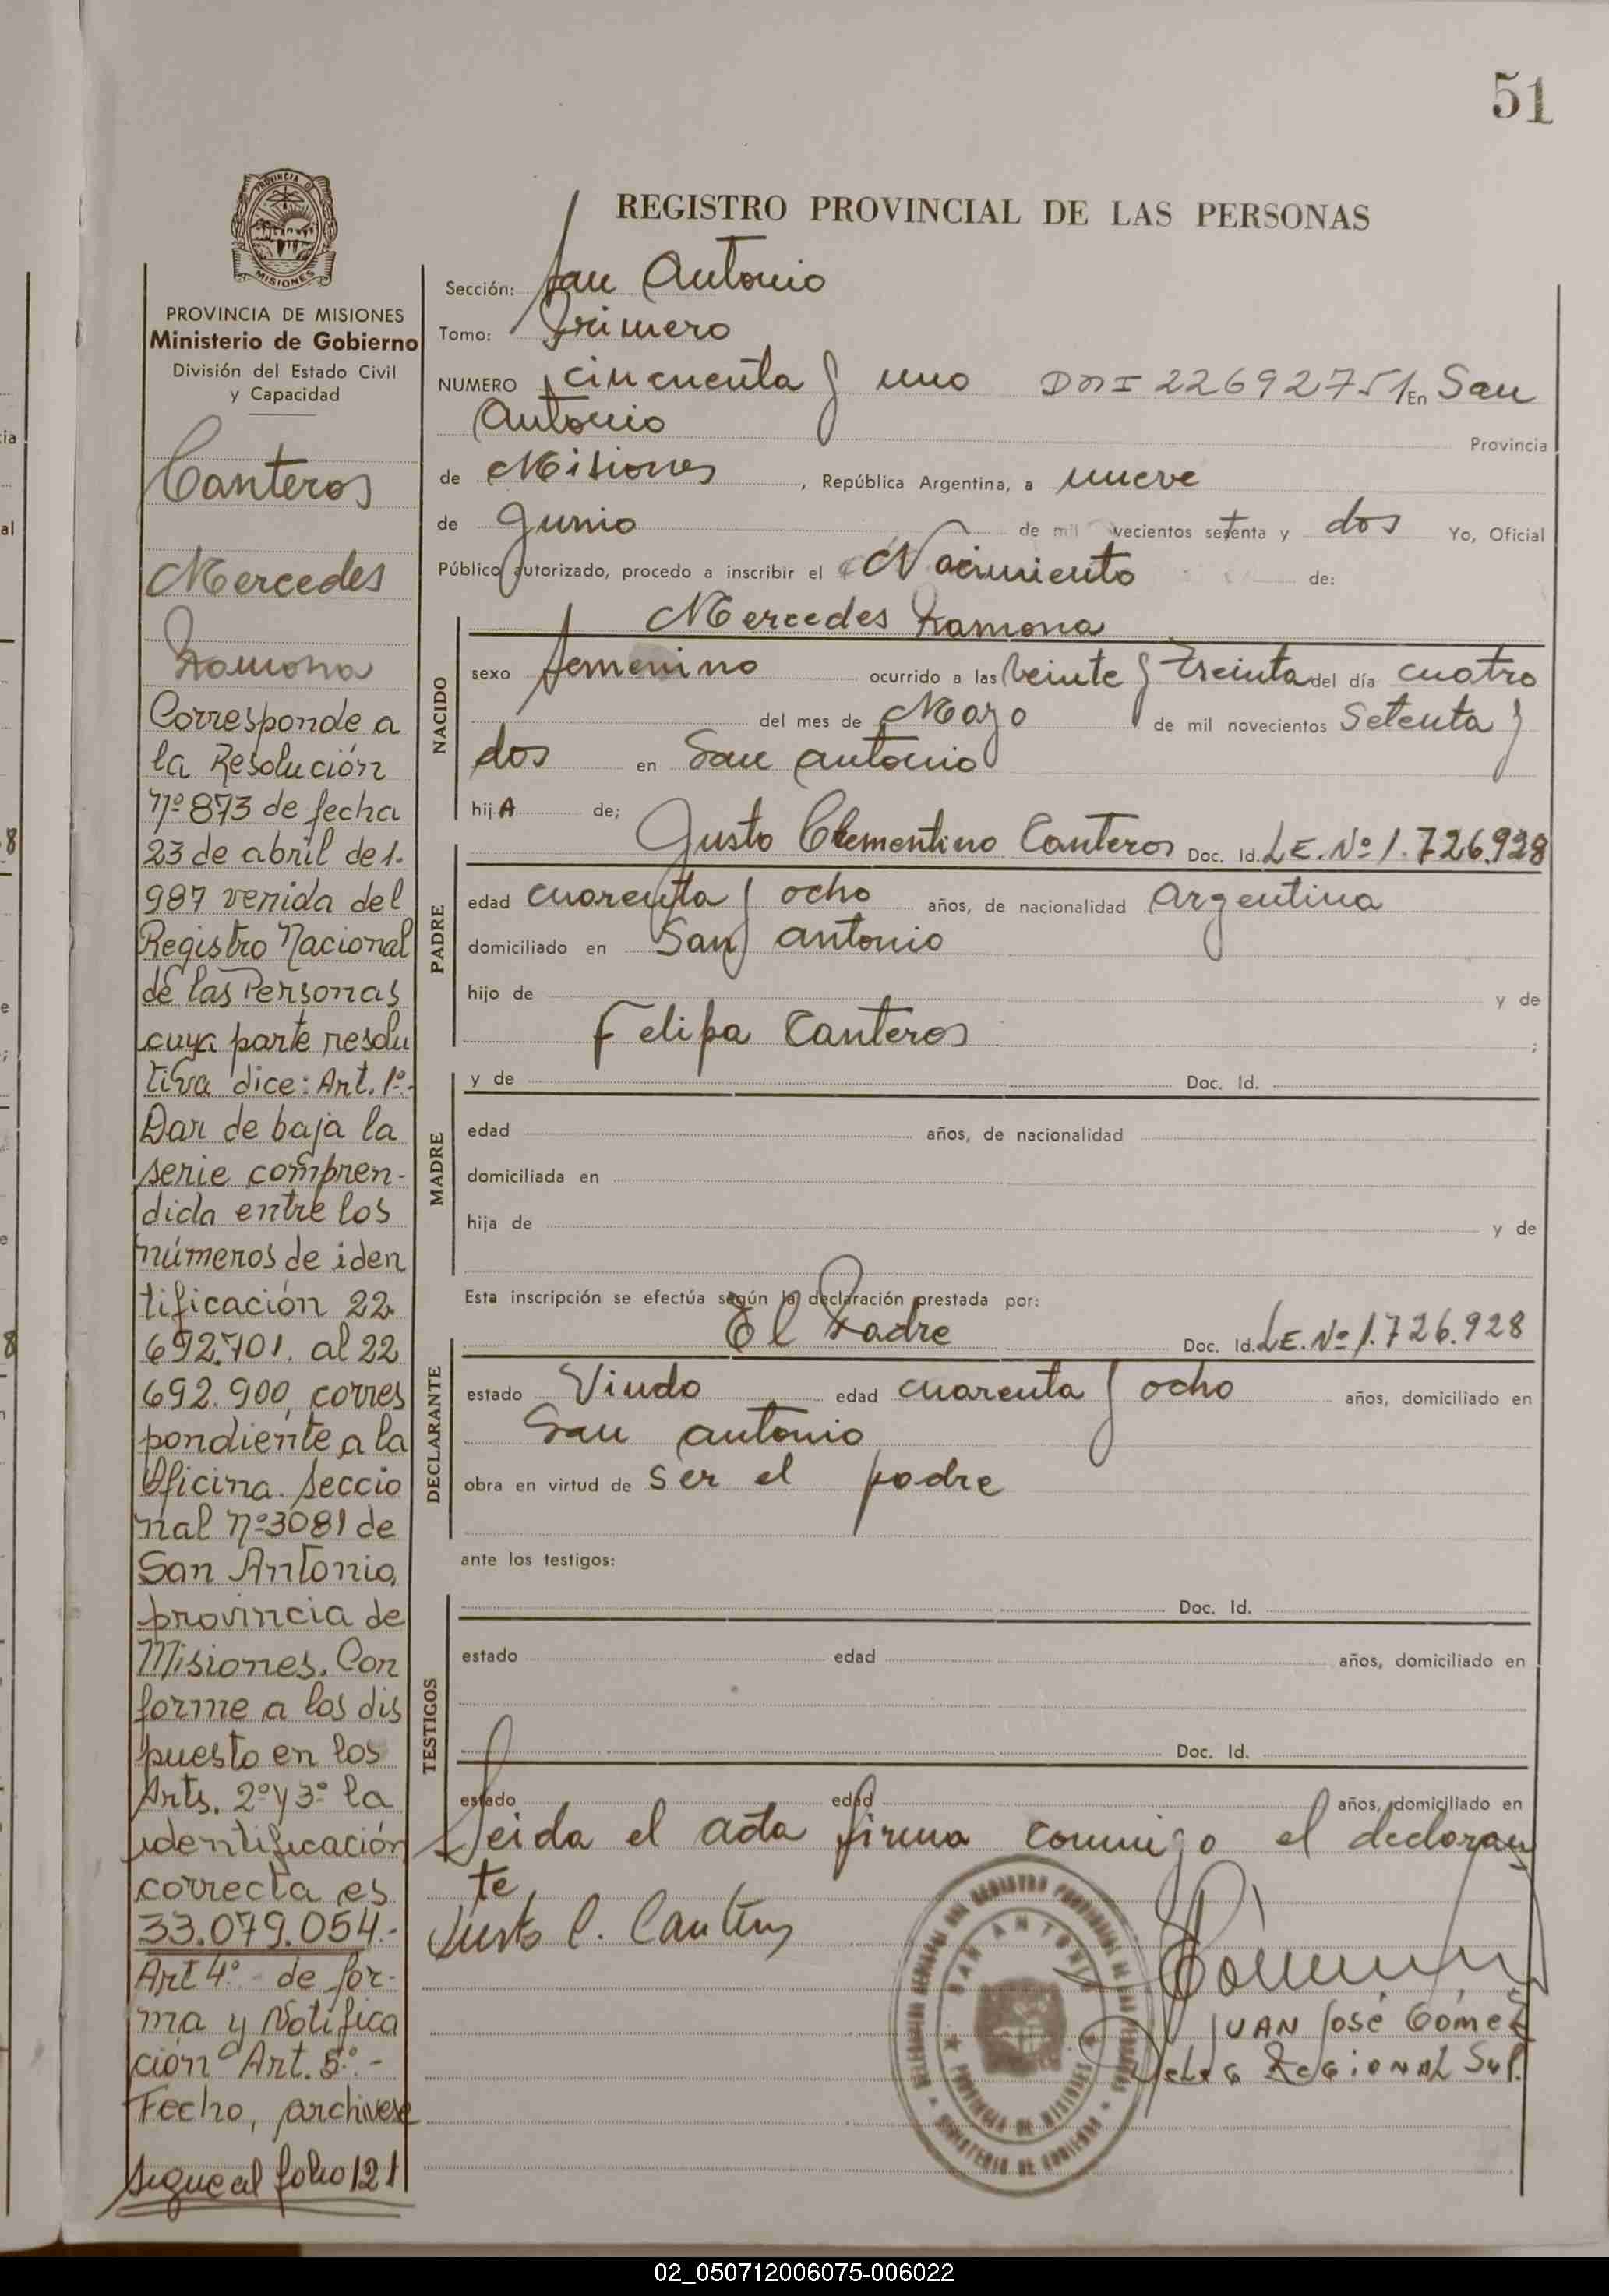 51
REGISTRO PROVINCIAL DE LAS PERSONAS
PROVINCIA DE
MISIONES
PROVINCIA DE MISIONES
Ministerio de Gobierno
División del Estado Civil
y Capacidad
Canteros
Mercedes
Ramona
Corresponde a
la Resolución
Nº 873 de fecha
23 de abril de 1.
987 venida del
Registro Nacional
de las Personas
cuya parte resolu
tiva dice: Art. 1º.-
Dar de baja la
serie compren-
dida entre los
números de iden
tificación 22.
692.701. al 22
692.900, corres
pondiente a la
Oficina Seccio
nal Nº 3081 de
San Antonio,
provincia de
Misiones. Con
forme a los dis
puesto en los
Arts. 2º y 3º la
identificación
correcta es
33.079.054.-
Art 4º.- de for-
ma y Notifica
ción Art. 5º.-
Fecho, archivese
sigue al folio 121
Sección: San Antonio
Tomo: Primero
NUMERO cincuenta y uno DNI 22692751 En San
Antonio Provincia
de Misiones, República Argentina, a nueve
de Junio de mil vecientos setenta y dos Yo, Oficial
Público autorizado, procedo a inscribir el Nacimiento de:
Mercedes Ramona
NACIDO
sexo femenino ocurrido a las veinte y treinta del día cuatro
del mes de Mayo de mil novecientos Setenta y
dos en San Antonio
hijA de;
Justo Clementino Canteros Doc. Id. L.E. Nº 1.726.928
PADRE
edad cuarenta y ocho años, de nacionalidad Argentina
domiciliado en San Antonio
hijo de y de
Felipa Canteros ;
y de Doc. Id.
MADRE
edad años, de nacionalidad
domiciliada en
hija de y de
Esta inscripción se efectúa según la declaración prestada por:
El Padre Doc. Id. L.E. Nº 1.726.928
DECLARANTE
estado Viudo edad cuarenta y ocho años, domiciliado en
San Antonio
obra en virtud de Ser el padre
ante los testigos:
Doc. Id.
TESTIGOS
estado edad años, domiciliado en
Doc. Id.
estado edad años, domiciliado en
Leida el acta firma conmigo el declaran
te
Justo C. Canteros
SAN ANTONIO
PROVINCIA DE MISIONES
MINISTERIO DE GOBIERNO
JUAN José Gómez
Deleg Regional Sup.
02_050712006075-006022